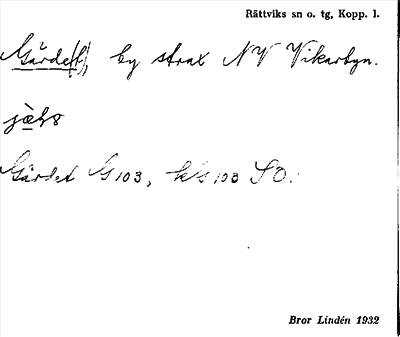 Rättviks sn o. tg, Kopp. l.
Gärde(t), by strax NV Vikarbyn.
Gärdet G 103, k/s 103 SO.
Bror Lindén 1932